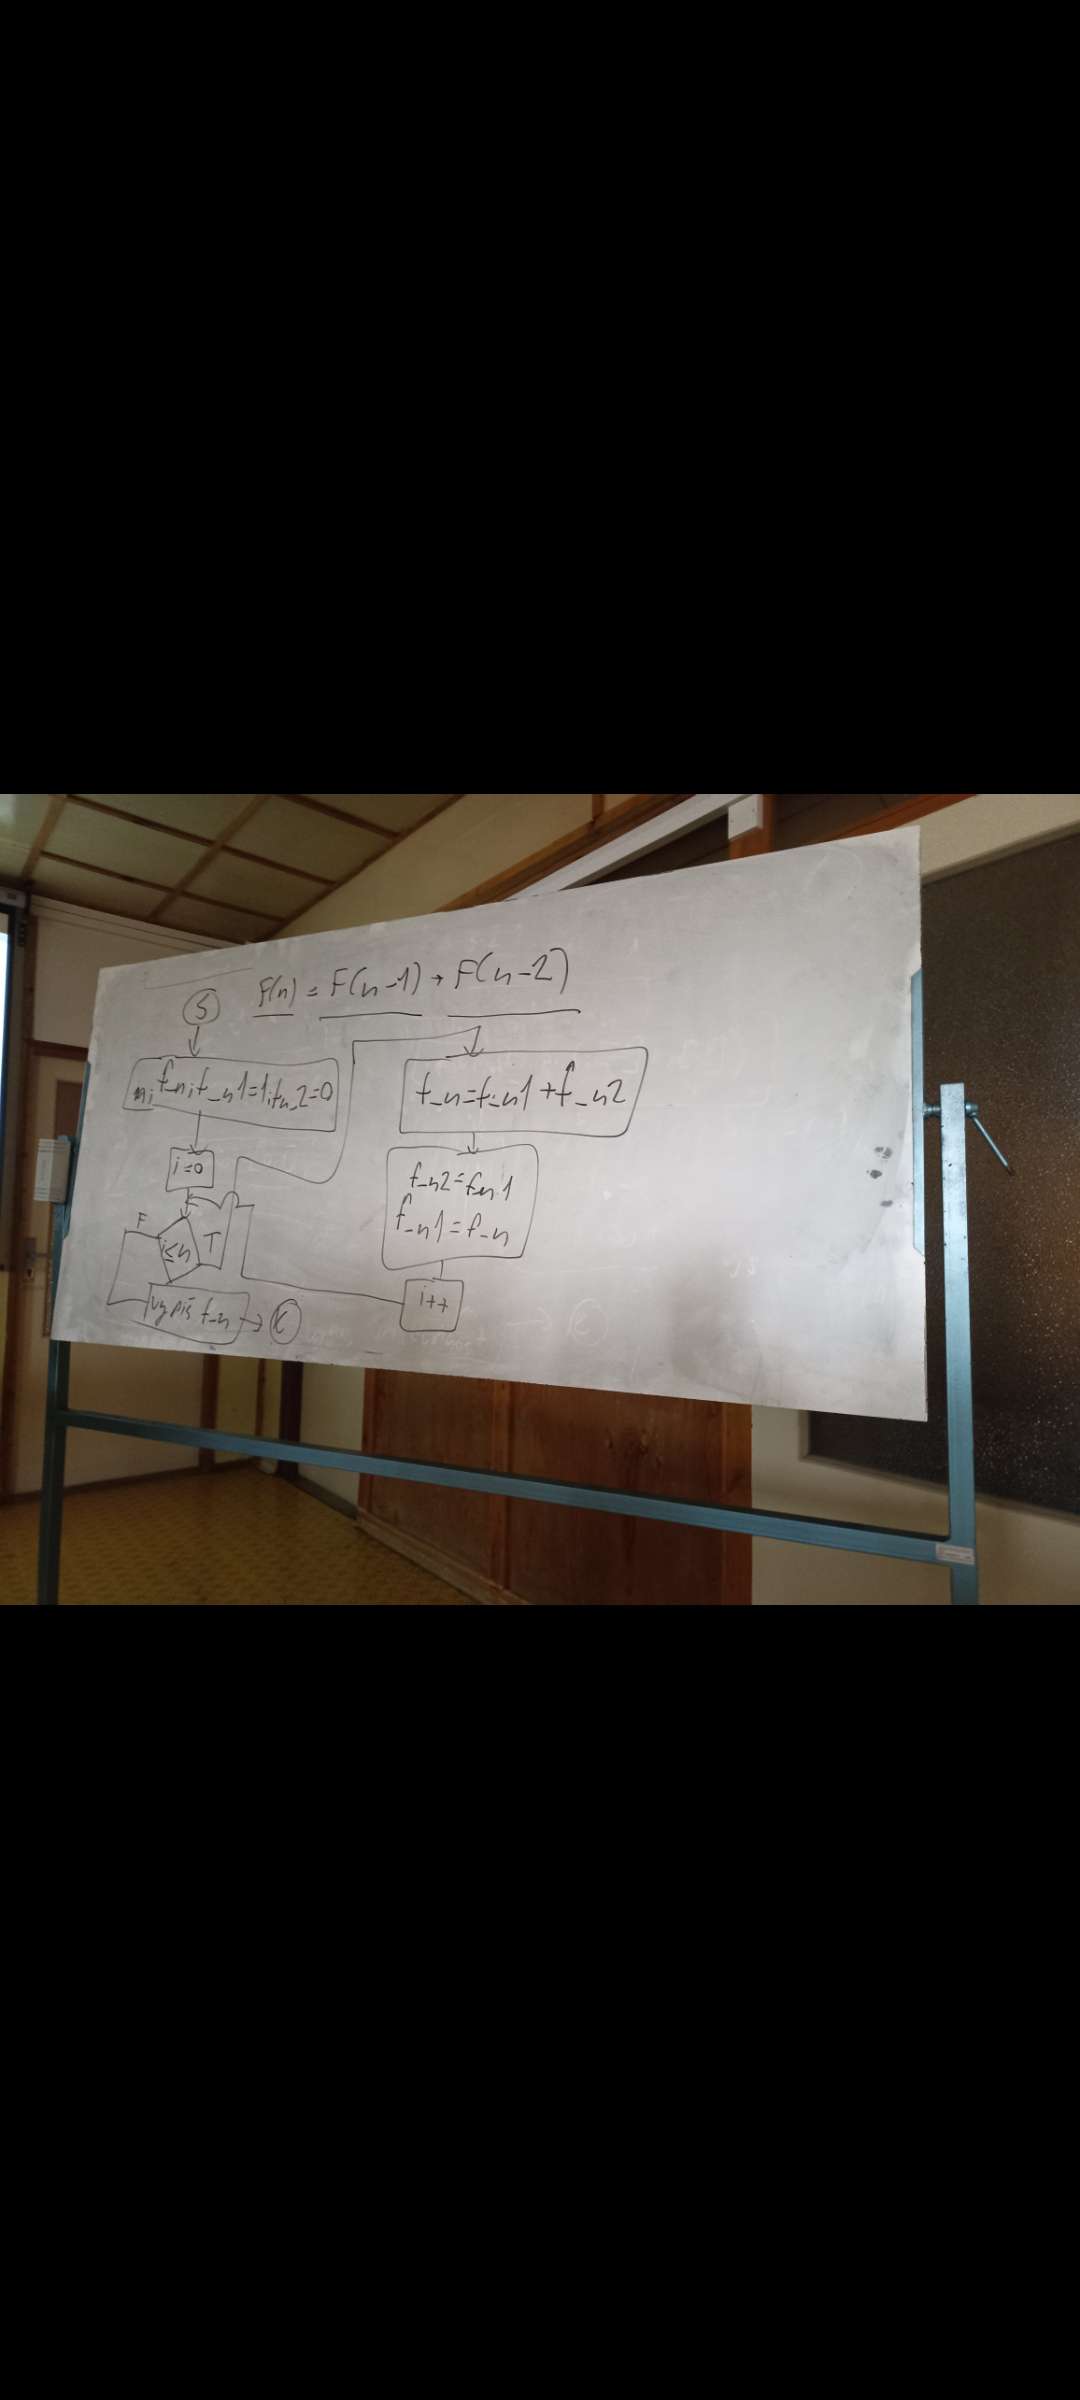 F(n) = F(n-1) + F(n-2)
S
n, f_n, f_n1=1, fn_2=0
i=0
i≤n
F
T
vypiš f_n
K
f_n=f_n1+f_n2
f_n2=fn_1
f_n1=f_n
i++